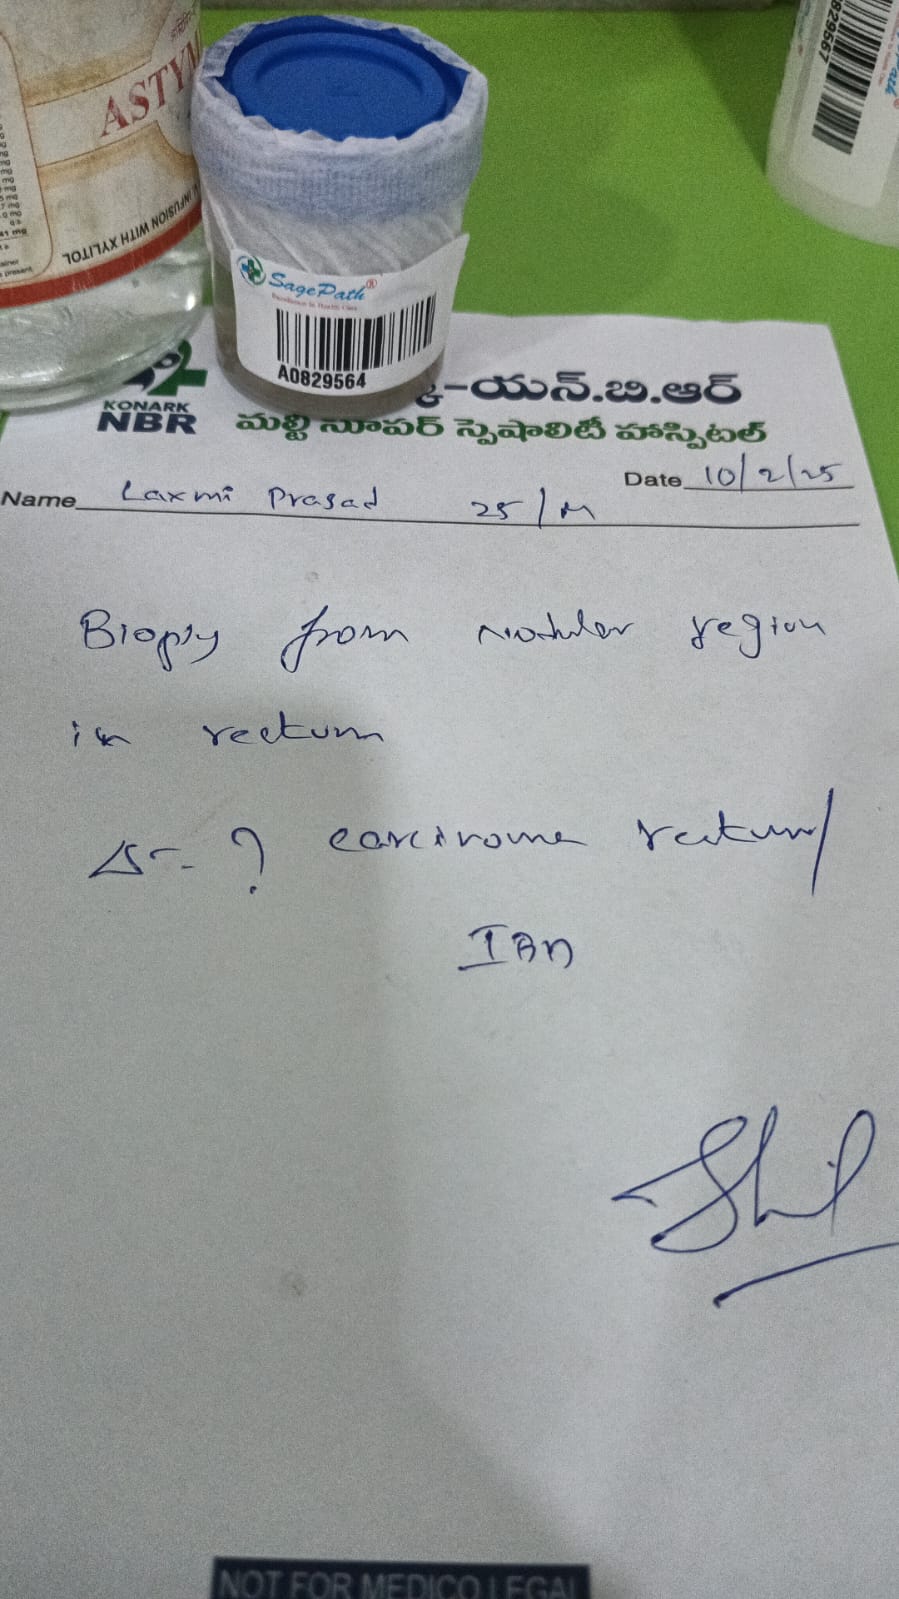 ASTYM
INFUSION WITH XYLITOL
SagePath®
A0829564
829567
-యన్.బి.ఆర్
KONARK
NBR
మల్టీ సూపర్ స్పెషాలిటీ హాస్పిటల్
Date 10/2/25
Name Laxmi Prasad 25/M
Biopsy from nodular region
in rectum
Δ- ? carcinoma rectum/
IBD
NOT FOR MEDICO LEGAL